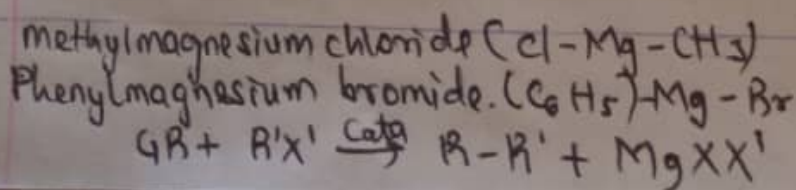 methylmagnesium chloride (Cl-Mg-CH3)
Phenylmagnasium bromide. (C6H5)-Mg-Br
GR + R'X' Cata→ R-R' + MgXX'